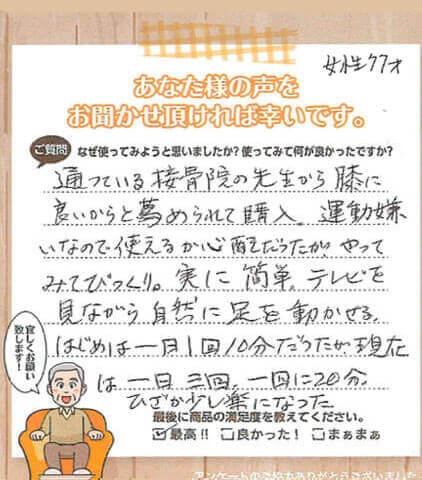 女性77才
あなた様の声を
お聞かせ頂ければ幸いです。
ご質問 なぜ使ってみようと思いましたか?使ってみて何が良かったですか?
通っている接骨院の先生から膝に
良いからと薦められて購入。運動嫌
いなので使えるか心配だったが、やって
みてびっくり。実に簡単。テレビを
見ながら自然に足を動かせる。
はじめは一日1回10分だったが、現在
は一日三回、一回に20分。
ひざが少し楽になった
宜しくお願い
致します!
最後に商品の満足度を教えてください。
☑最高!! □良かった! □まぁまぁ
アンケートのご協力ありがとうございました